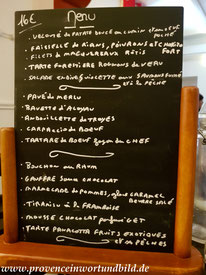 16€ Menu
- VELOUTÉ de PATATE DOUCE au CUMIN et son OEUF
POCHÉ
- FAISSELLE de RIANS, POIVRONS et CHORIZO
FORT
- FILETS de MAQUEREAUX RÔTIS
- TARTE FORESTIÈRE ROGNONS de VEAU
- SALADE ENDIVES VIOLETTE aux
et la PÊCHE
- PAVÉ du MERLU
- BAVETTE d'ALOYAU
- ANDOUILLETTE de TROYES
- CARPACCIO de BOEUF
- TARTARE de BOEUF façon du CHEF
- BOUCHON au RHUM
- GAUFRE SAUCE CHOCOLAT
- MARMELADE de POMMES, CARAMEL
BEURRE SALÉ
- TIRAMISU à la FRAMBOISE
- MOUSSE CHOCOLAT GET
- TARTE PANACOTTA FRUITS EXOTIQUES
et ou PÊCHES
© www.provenceinwortundbild.de